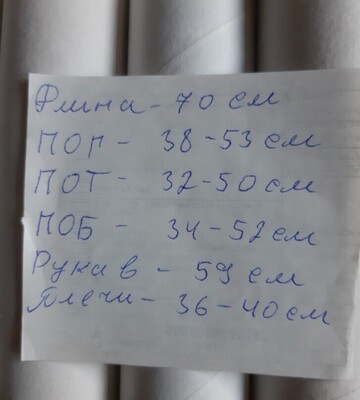 Длина - 70 см
ПОГ - 38-53 см
ПОТ - 32-50 см
ПОБ - 34-52 см
Рукав - 59 см
Плечи - 36-40 см